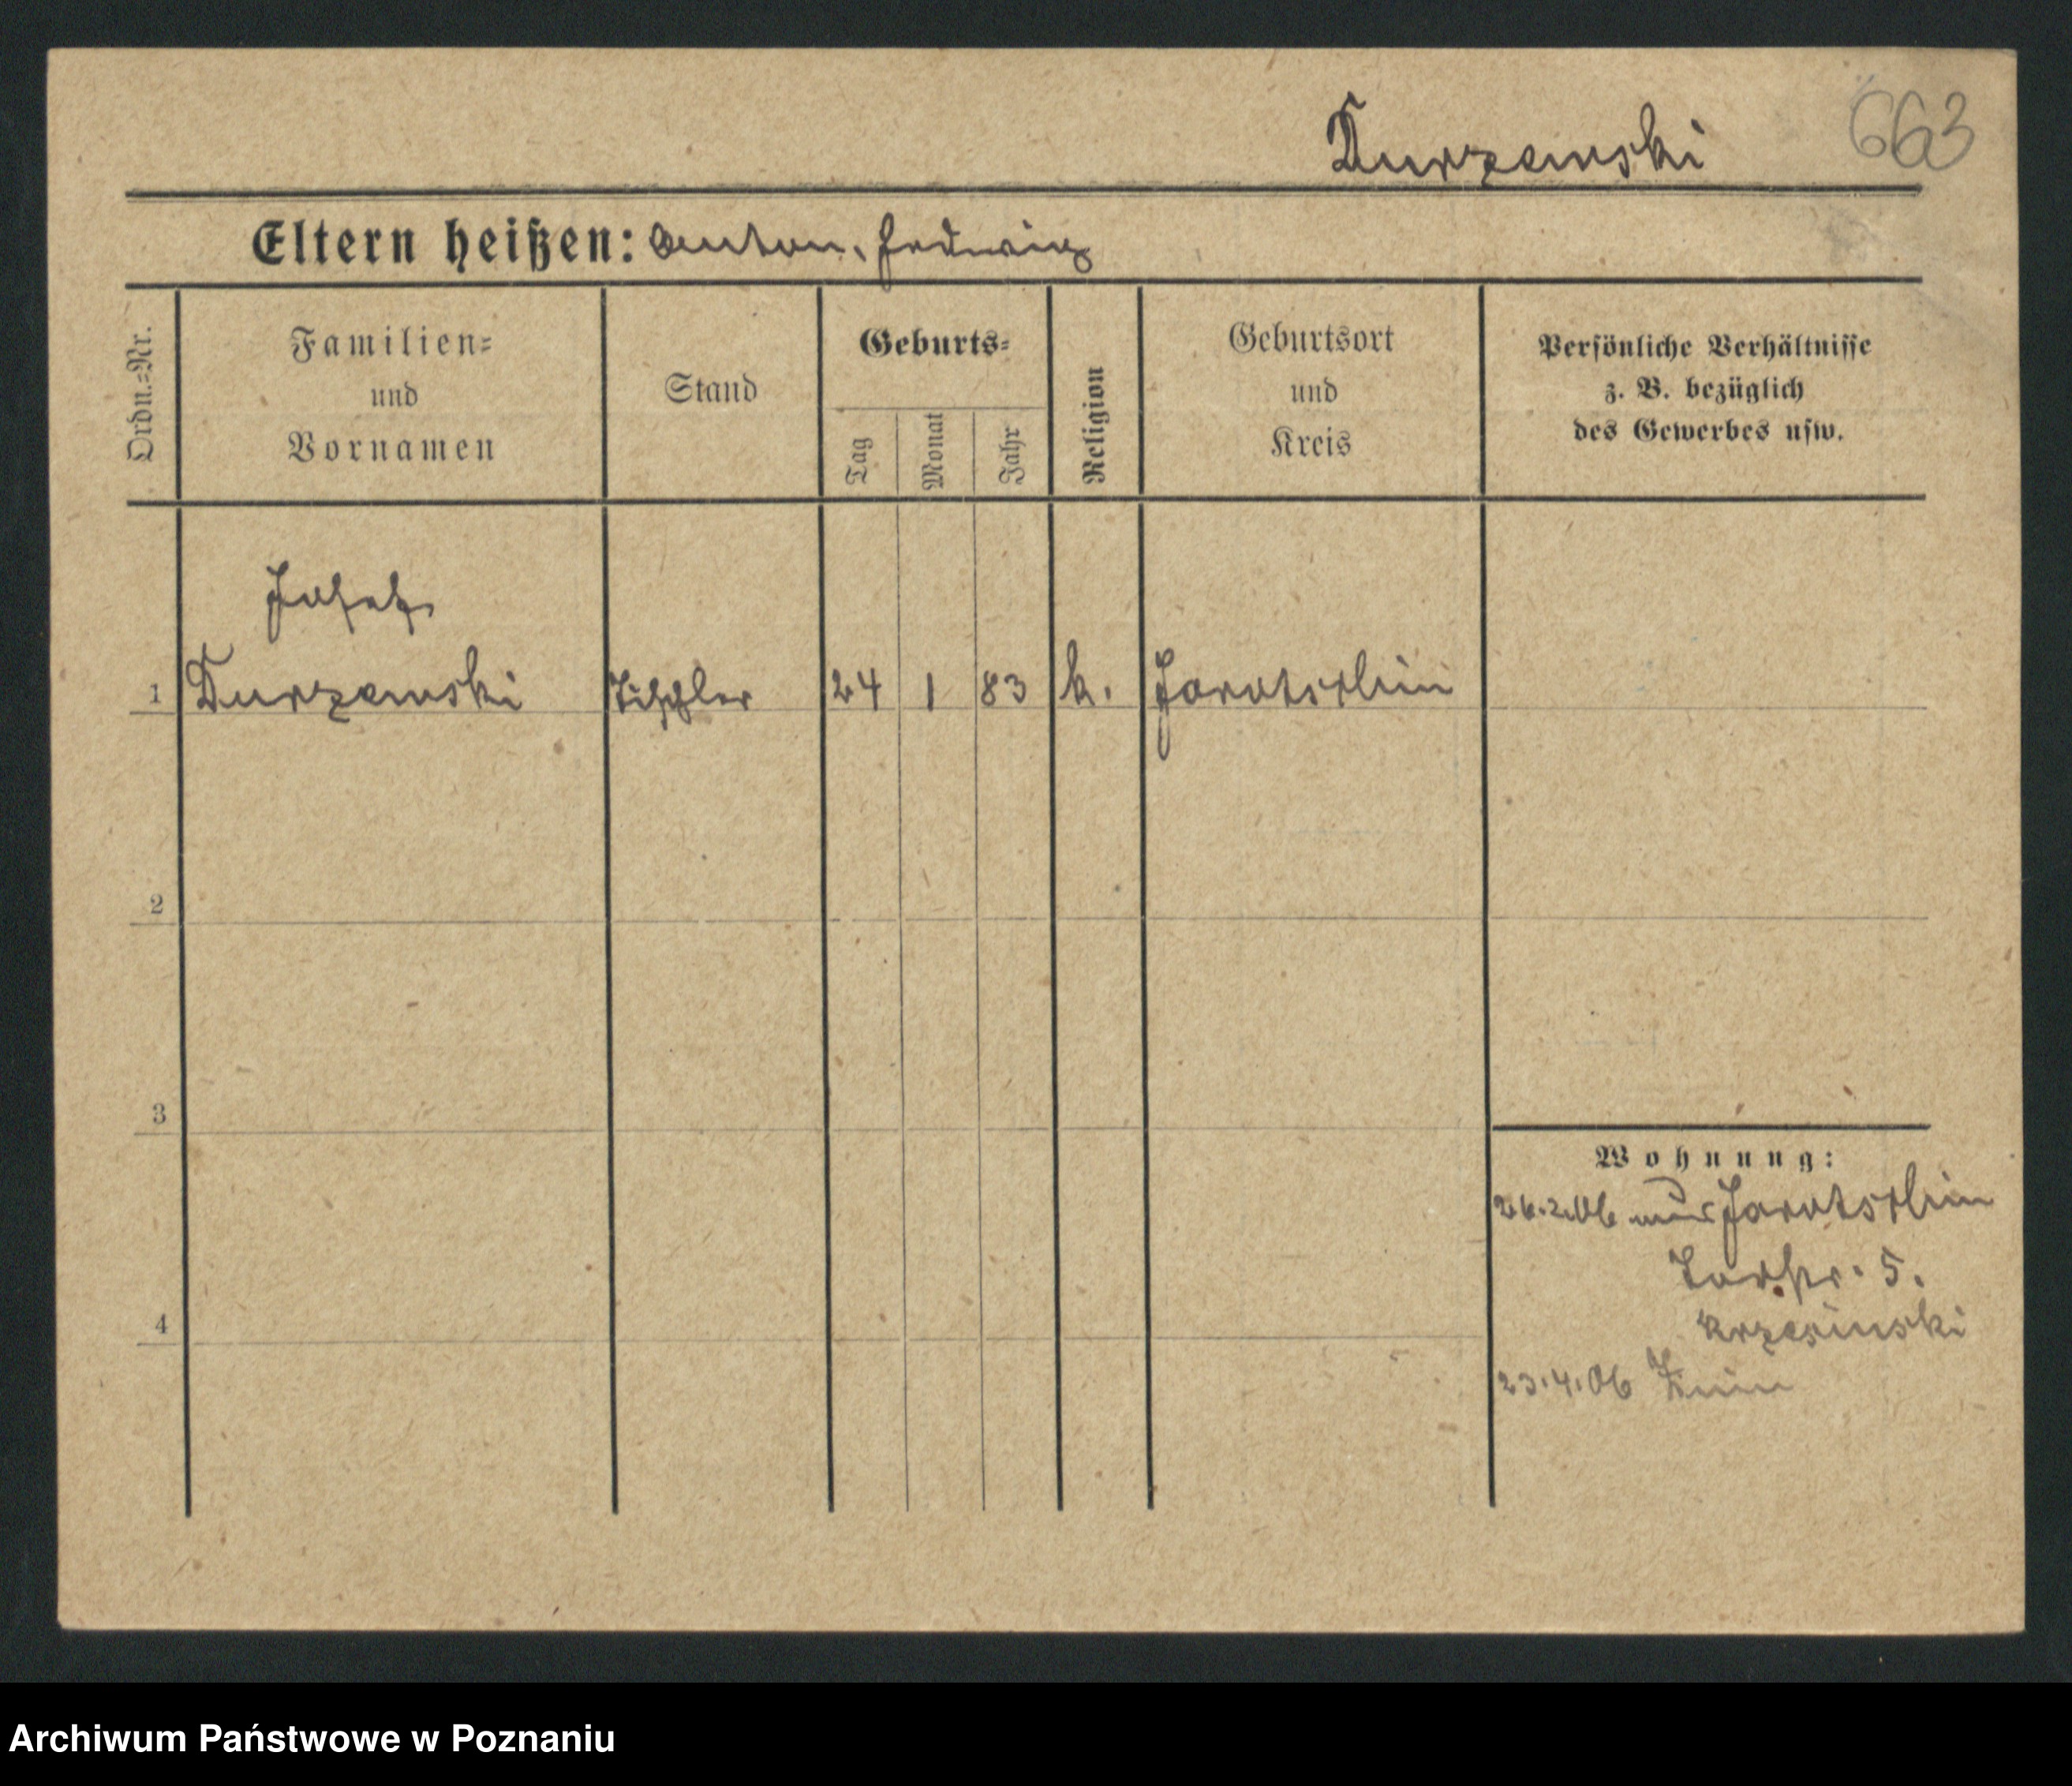 Kurzewski 663
Eltern heißen: Anton, Hedwig
Ordn.=Nr.
Familien=
und
Vornamen
Stand
Geburts=
Tag
Monat
Jahr
Religion
Geburtsort
und
Kreis
Persönliche Verhältnisse
z. B. bezüglich
des Gewerbes usw.
Josef
1 Kurzewski Tischler 24 1 83 k. Jarotschin
2
3
4
Wohnung:
26.2.06 aus Jarotschin
Torstr. 5.
Krzesinski
23.4.06 Znin
Archiwum Państwowe w Poznaniu